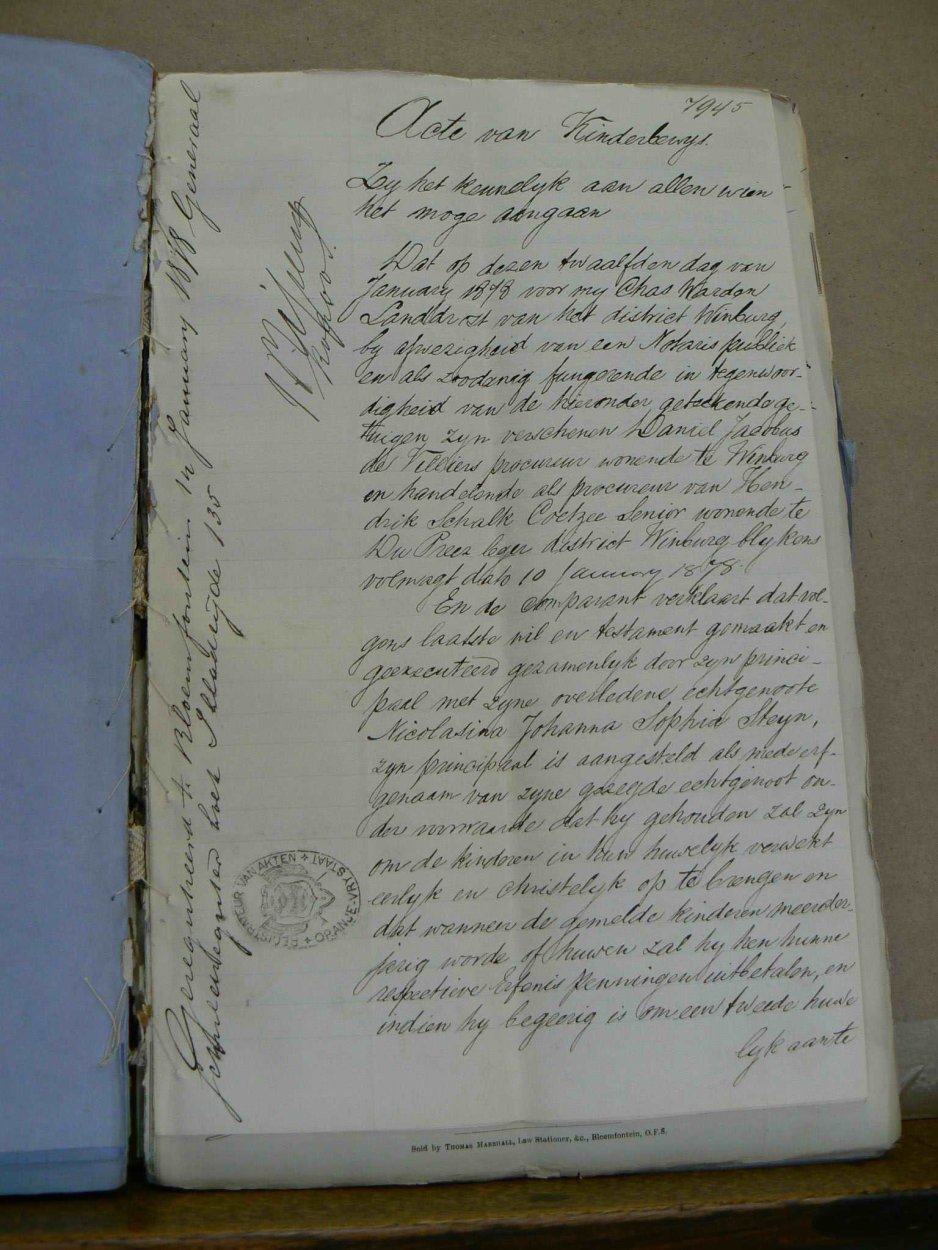 7945
Acte van Kinderbewys.
Zy het kennelyk aan allen wien
het moge aangaan
Dat op dezen twaalfden dag van
January 1878 voor my Chas Warden
Landdrost van het district Winburg,
by afwezigheid van een Notaris publiek
en als zoodanig fungerende in tegenwoor-
digheid van de hieronder geteekende ge-
tuigen, zyn verschenen Daniel Jacobus
de Villiers procureur wonende te Winburg
en handelende als procureur van Hen-
drik Schalk Coetzee Senior wonende te
Du Preez leger district Winburg blykens
volmagt dato 10 January 1878.
En de comparant verklaart dat vol-
gens laatste wil en testament gemaakt en
geexecuteerd gezamenlyk door zyn princi-
paal met zyne overledene echtgenoote
Nicolasina Johanna Sophia Steyn,
zyn principaal is aangesteld als mede erf-
genaam van zyne gezegde echtgenoot on-
der voorwaarde dat hy gehouden zal zyn
om de kinderen in hun huwelyk verwekt
eerlyk en christelyk op te brengen en
dat wanneer de gemelde kinderen meerder-
jarig worde of huwen zal hy hen hunne
respectieve Erfenis penningen uitbetalen, en
indien hy begeerig is om een tweede huwe
lyk aan te
Geregistreerd te Bloemfontein 14 January 1878 Generaal
Schuldregister boek Bladzyde 135
REGISTRATEUR VAN AKTEN + ORANJE-VRYSTAAT +
Sold by THOMAS MARSHALL, Law Stationer, &c., Bloemfontein, O.F.S.